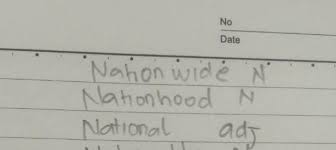 No
Date
Nation wide N
Nationhood N
National adj